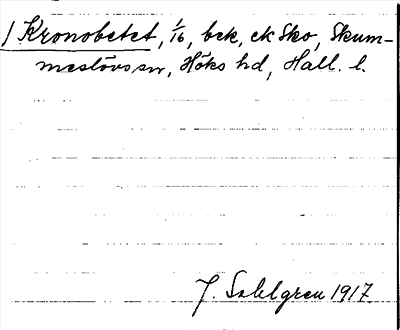 / Kronobetet, 1/16, bek, ek Sko, Skum-
meslövs sn, Höks hd, Hall. l.
J. Sahlgren 1917